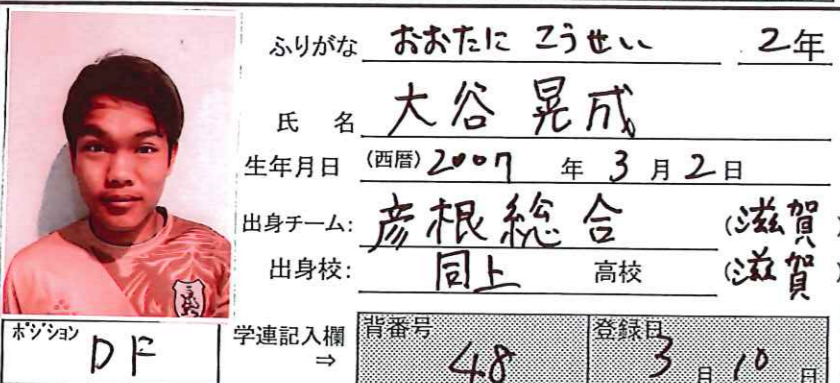 ふりがな おおたに こうせい 2年
氏 名 大谷 晃成
生年月日 (西暦) 2007 年 3 月 2 日
出身チーム: 彦根総合 (滋賀)
出身校: 同上 高校 (滋賀)
ポジション DF
学連記入欄 ⇒
背番号 48
登録日 3 月 10 日